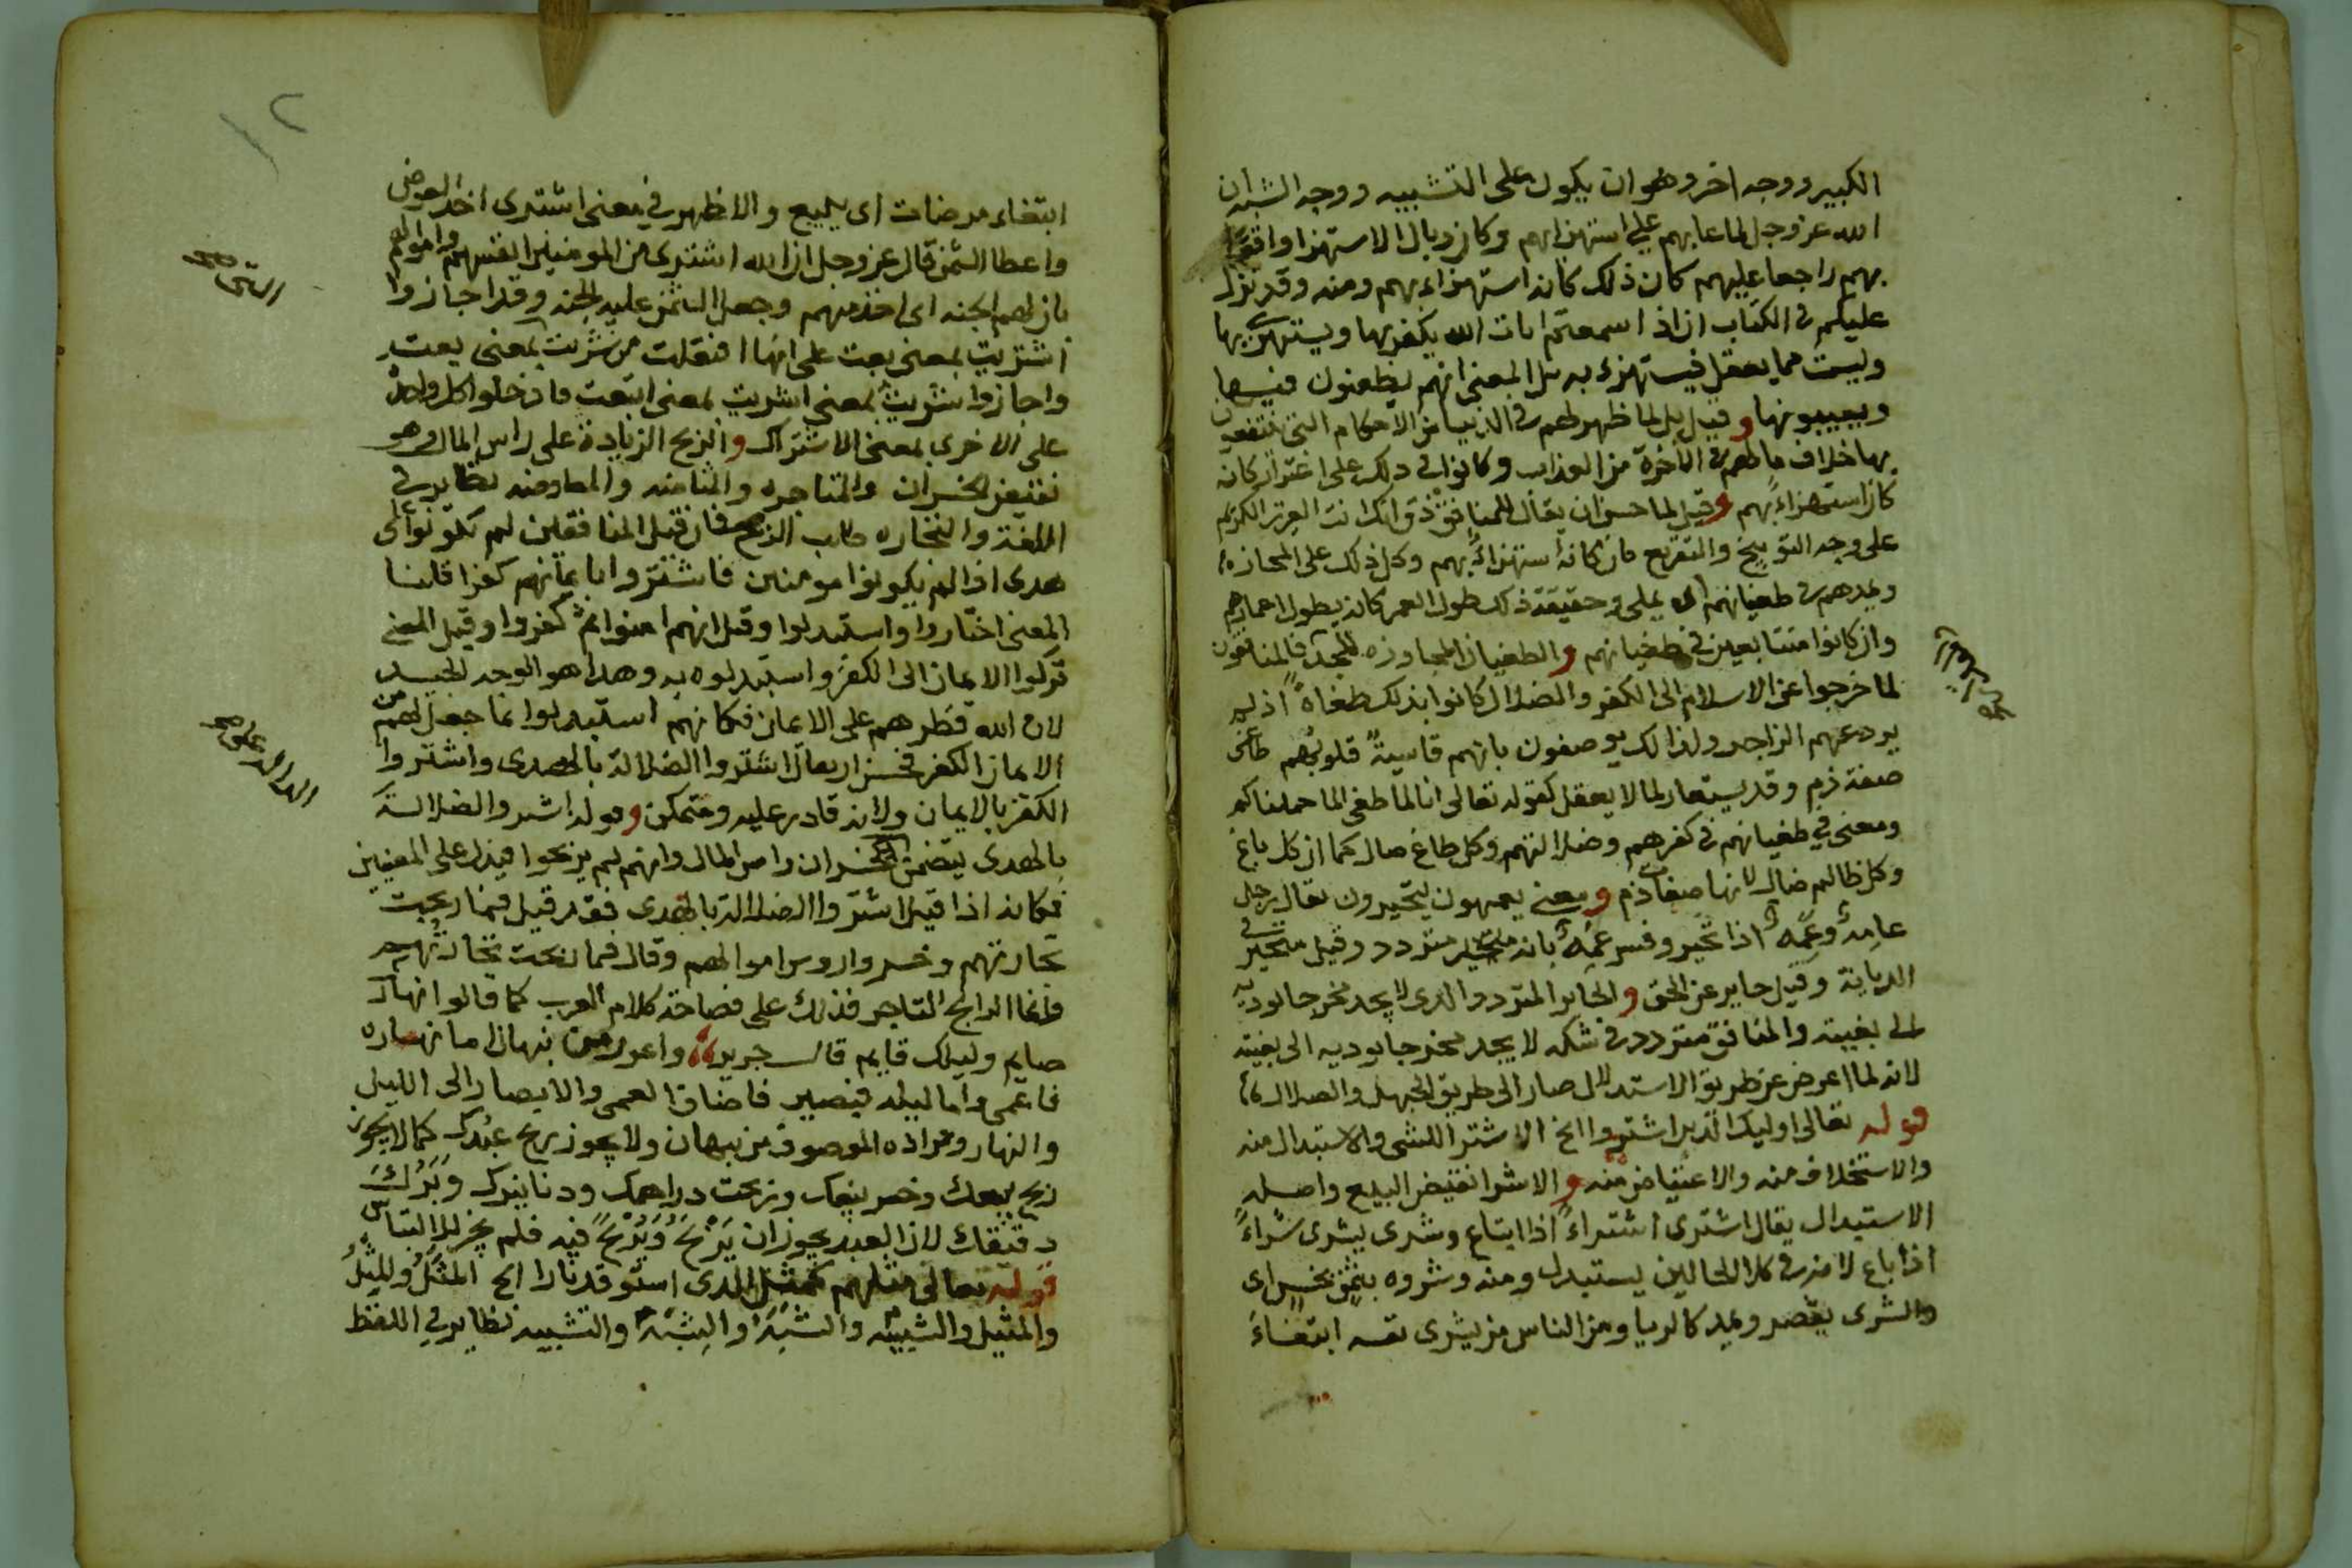 الكبير ووجه اخر وهو ان يكون على التشبيه ووجه الشبه ان
الله عز وجل لما عابهم على استهزايهم وكان وبال الاستهزا واقعا
بهم راجعا عليهم كان ذلك كانه استهزاء بهم ومنه وقد نزل
عليكم في الكتاب ان اذا سمعتم ايات الله يكفر بها ويستهزئ بها
وليست مما يعقل فيستهزء به بل المعنى انهم يطعنون فيها
ويعيبونها وقيل بل لما ظهر لهم في الدنيا من الاحكام التي ينتفعون
بها خلاف ما لهم في الاخرة من العذاب وكانوا في ذلك على اغترار كانه
كان استهزاء بهم وقيل لما حسن ان يقال للمنافق ذق انك انت العزيز الكريم
على وجه التوبيخ والتقريع كان كانه استهزاء بهم وكل ذلك على المجازة
ويمدهم في طغيانهم اى يملي وحقيقة ذلك طول العمر كانه يطول اعمارهم
وان كانوا متتابعين في طغيانهم والطغيان المجاوزه للحد فالمنافقون
لما خرجوا عن الاسلام الى الكفر والضلال كانوا بذلك طغاة اذ لم
يردعهم الزاجر ولذالك يوصفون بانهم قاسية قلوبهم طاغى
صفة ذم وقد يستعار لما لا يعقل كقوله تعالى انا لما طغى الماء حملناكم
ومعنى في طغيانهم في كفرهم وضلالتهم وكل طاغ ضال كما ان كل باغ
وكل ظالم ضال لانها صفات ذم ومعنى يعمهون يتحيرون يقال رجل
عامه وعمه اذا تحير وفسر عمه بانه متحير متردد وقيل متحير في
الديانة وقيل حاير عن الحق والحاير المتردد الذى لا يجد مخرجا يوديه
الى بغيته والمنافق متردد في شكه لا يجد مخرجا يوديه الى بغيته
لانه لما اعرض عن طريق الاستدلال صار الى طريق الجهل والضلال
قوله تعالى اوليك الذين اشتروا الخ الاشترا للشى والاستبدال منه
والاستخلاف منه والاعتياض منه والاشترا نقيض البيع واصله
الاستبدال يقال اشترى اشتراء اذا ابتاع وشرى يشرى شراء
اذا باع لانه في كلا الحالين يستبدل ومنه وشروه بثمن بخس اى
والشرى يقصر ويمد كالربا ومن الناس من يشرى نفسه ابتغاء
ابتغاء مرضات اى يبيع والاظهر في معنى اشترى اخذ العوض
واعطا الثمن قال عز وجل ان الله اشترى من المومنين انفسهم واموالهم
بان لهم الجنه اى اخذ منهم وجعل الثمن عليه الجنه وقد اجازوا
اشتريت بمعنى بعت على انها افتعلت من شريت بمعنى بعت
واجازوا شريت بمعنى اشتريت بمعنى ابتعت فادخلوا كل واحدة
على الاخرى بمعنى الاشتراك والربح الزيادة على راس المال وهو
نقيض الخسران والمتاجره والمثامنه والمعاوضه نظاير في
اللغة والتجاره طلب الربح فان قيل المنافقين لم يكونوا على
هدى اذا لم يكونوا مومنين فاشتروا بايمانهم كفرا قلنا
المعنى اختاروا واستبدلوا وقيل انهم امنوا ثم كفروا وقيل المعنى
تركوا الايمان الى الكفر واستبدلوه به وهذا هو الوجه الجيد
لان الله فطرهم على الايمان فكانهم استبدلوا بما جعل لهم من
الايمان الكفر فحسن ان يقال اشتروا الضلالة بالهدى واشتروا
الكفر بالايمان ولانه قادر عليه ومتمكن وقوله اشتروا الضلالة
بالهدى يتضمن الخسران راس المال وانهم لم يربحوا فيدل على المعنيين
فكانه اذا قيل اشتروا الضلالة بالهدى فقد قيل فما ربحت
تجارتهم وخسروا روس اموالهم وقال فما ربحت تجارتهم
وانما الرابح التاجر فذلك على فصاحة كلام العرب كما قالوا نهارك
صايم وليلك قايم قال جرير واعور من نبهان اما نهاره
فاعمى واما ليله فبصير فاضاف العمى والابصار الى الليل
والنهار ومراده الموصوف من نبهان ولا يجوز ربح عبدك كما لا يجوز
ربح بيعك وخسر بيعك وربحت دراهمك ودنانيرك وبرك
دقيقك لان العبد يجوز ان يربح ويربح فيه فلم يجز للالتباس
قوله تعالى مثلهم كمثل الذى استوقد نارا الخ المثل والمثل
والمثيل والشبيه والشبه والشبه والتشبيه نظاير في اللفظ